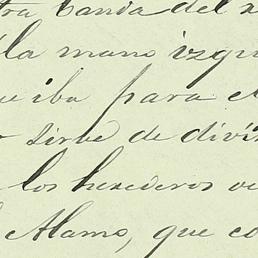 tra banda del
la mano izqu
ue iba para el
sirve de divis
los herederos
Alamo, que co